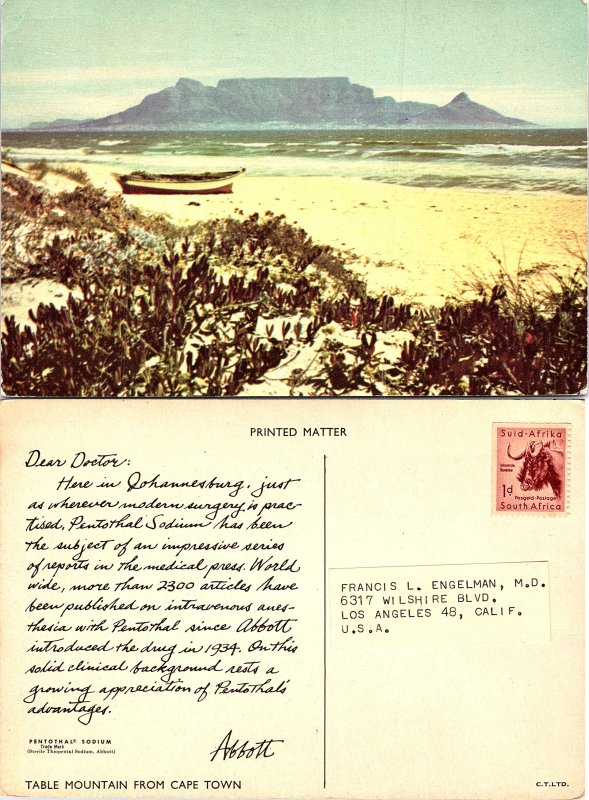 PRINTED MATTER
Dear Doctor:
Here in Johannesburg, just
as wherever modern surgery is prac-
tised, Pentothal Sodium has been
the subject of an impressive series
of reports in the medical press. World
wide, more than 2300 articles have
been published on intravenous anes-
thesia with Pentothal since Abbott
introduced the drug in 1934. On this
solid clinical background rests a
growing appreciation of Pentothal's
advantages.
Abbott
PENTOTHAL® SODIUM
Trade Mark
(Sterile Thiopental Sodium, Abbott)
TABLE MOUNTAIN FROM CAPE TOWN
Suid-Afrika
1d
Posgeld-Postage
South Africa
FRANCIS L. ENGELMAN, M.D.
6317 WILSHIRE BLVD.
LOS ANGELES 48, CALIF.
U.S.A.
C.T.LTD.